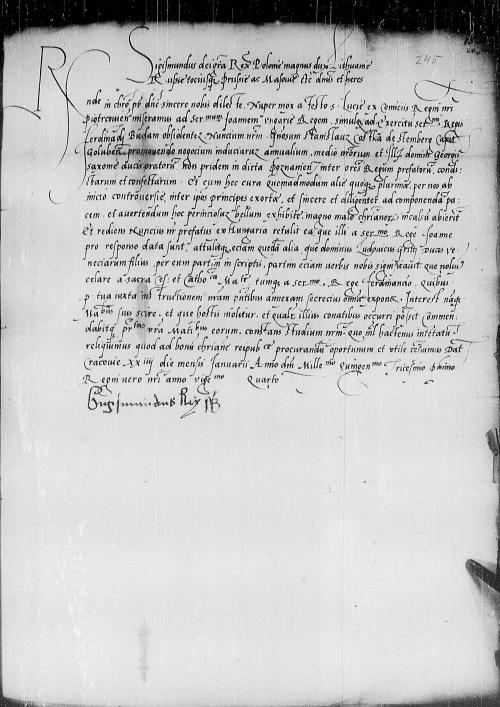 245
Sigismundus dei gra Rex Polonie magnus dux Lithuanie
Russie tociusq prussie ac Masouie etc dnus et heres
nde in chro pr dne sincere nobis dilecte. Nuper mox a festo s. Lucie ex Comicijs Regni nri
piotrcouien miseramus ad sermum Joannem vngarie Regem, simulq ad exercitu sermi Regis
ferdinadi Budam obsidente, Nuncium nrm gnosum Stanislauz Costka de Stemberg Capit
Goluben promouendo negocium induciarz annualium, medio nrorum et Illi domini Georgii
saxonie ducis oratorum non pridem in dieta poznanien inter ores Regum prefatoru, condi
ctarum et confectarum. Et eum hec cura quemadmodum alie quoq plurime, per nos ab
inicio controuersie, inter ipsos principes exorte, et sincere et diligenter ad componenda pa
cem, et auertendum hoc periculosuz bellum exhibite, magno malo chrianor, in casum abierit
Et rediens Nuncius nr prefatus ex hungaria retulit ea que illi a sermo Rege Joanne
pro responso data sunt, attulitq eciam queda alia que dominus Ludouicus Gritj ducis ve
neciarum filius, per eum partim in scriptis, partim eciam verbis nobis significauit, que nolui
celare a sacra Ces: et Cathoca Mate tumq a sermo. Rege ferdinando. quibus
p. tua iuxta instructionem nram pntibus annexam secrecius omia exponet. Interest nāq
Matibus suis scire, et que hostis molitur, et quale illius conatibus occurri posset. Commen
dabitq prtas vra Matibus eorum, constans studium nrm, quo illis hactenus intentati
religiuimus quod ad bonu chriane reipubce procurandu oportunum et vtile censuimus. Dat
Cracouie XXiiij die mensis Januarii Anno dni Millemo Quingenmo Tricesimo primo
Regni vero nri anno vigemo Quarto
Sigismundus Rex sst